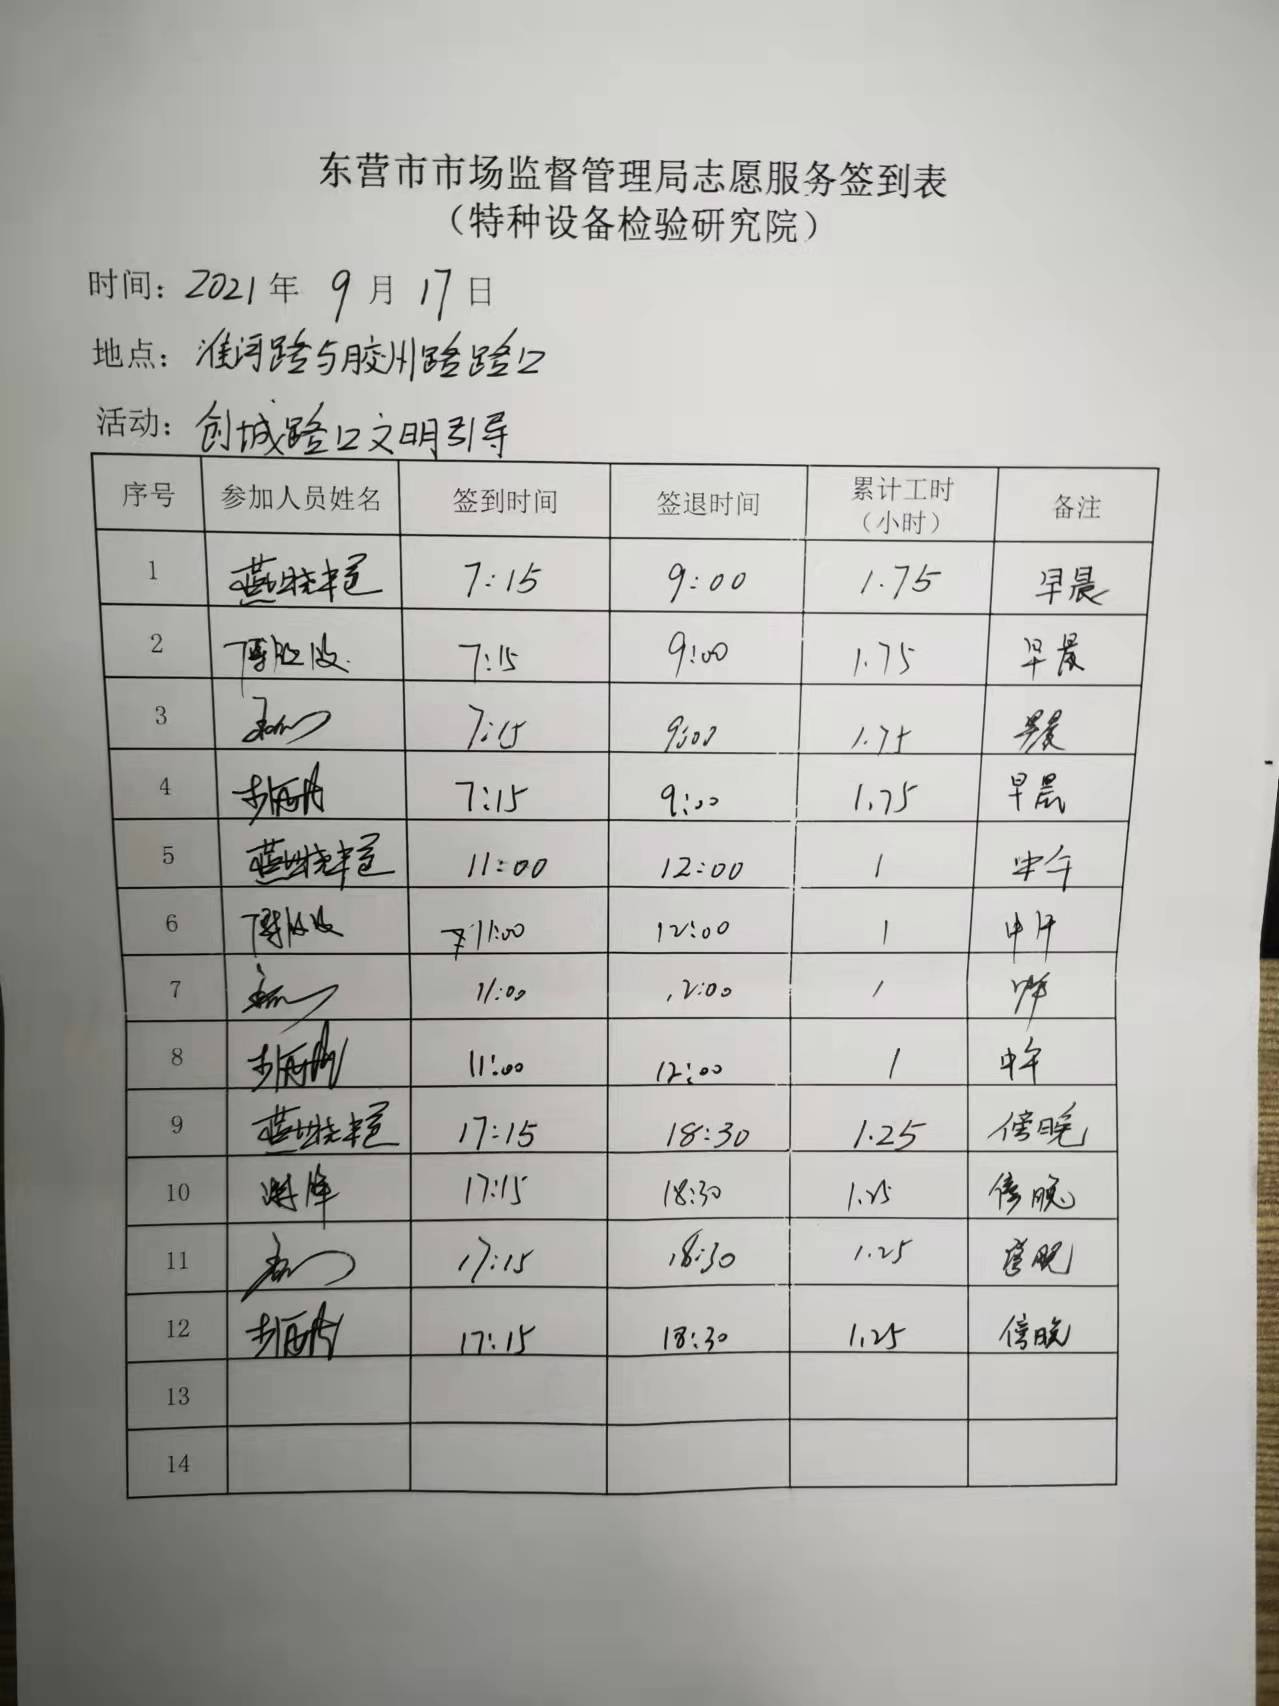 东营市市场监督管理局志愿服务签到表
（特种设备检验研究院）
时间：2021年 9月 17日
地点：淮河路与胶州路路口
活动：创城路口文明引导
序号 参加人员姓名 签到时间 签退时间 累计工时（小时） 备注
1 7:15 9:00 1.75 早晨
2 7:15 9:00 1.75 早晨
3 7:15 9:00 1.75 早晨
4 7:15 9:00 1.75 早晨
5 11:00 12:00 1 中午
6 11:00 12:00 1 中午
7 11:00 12:00 1 中午
8 11:00 12:00 1 中午
9 17:15 18:30 1.25 傍晚
10 17:15 18:30 1.25 傍晚
11 17:15 18:30 1.25 傍晚
12 17:15 18:30 1.25 傍晚
13
14